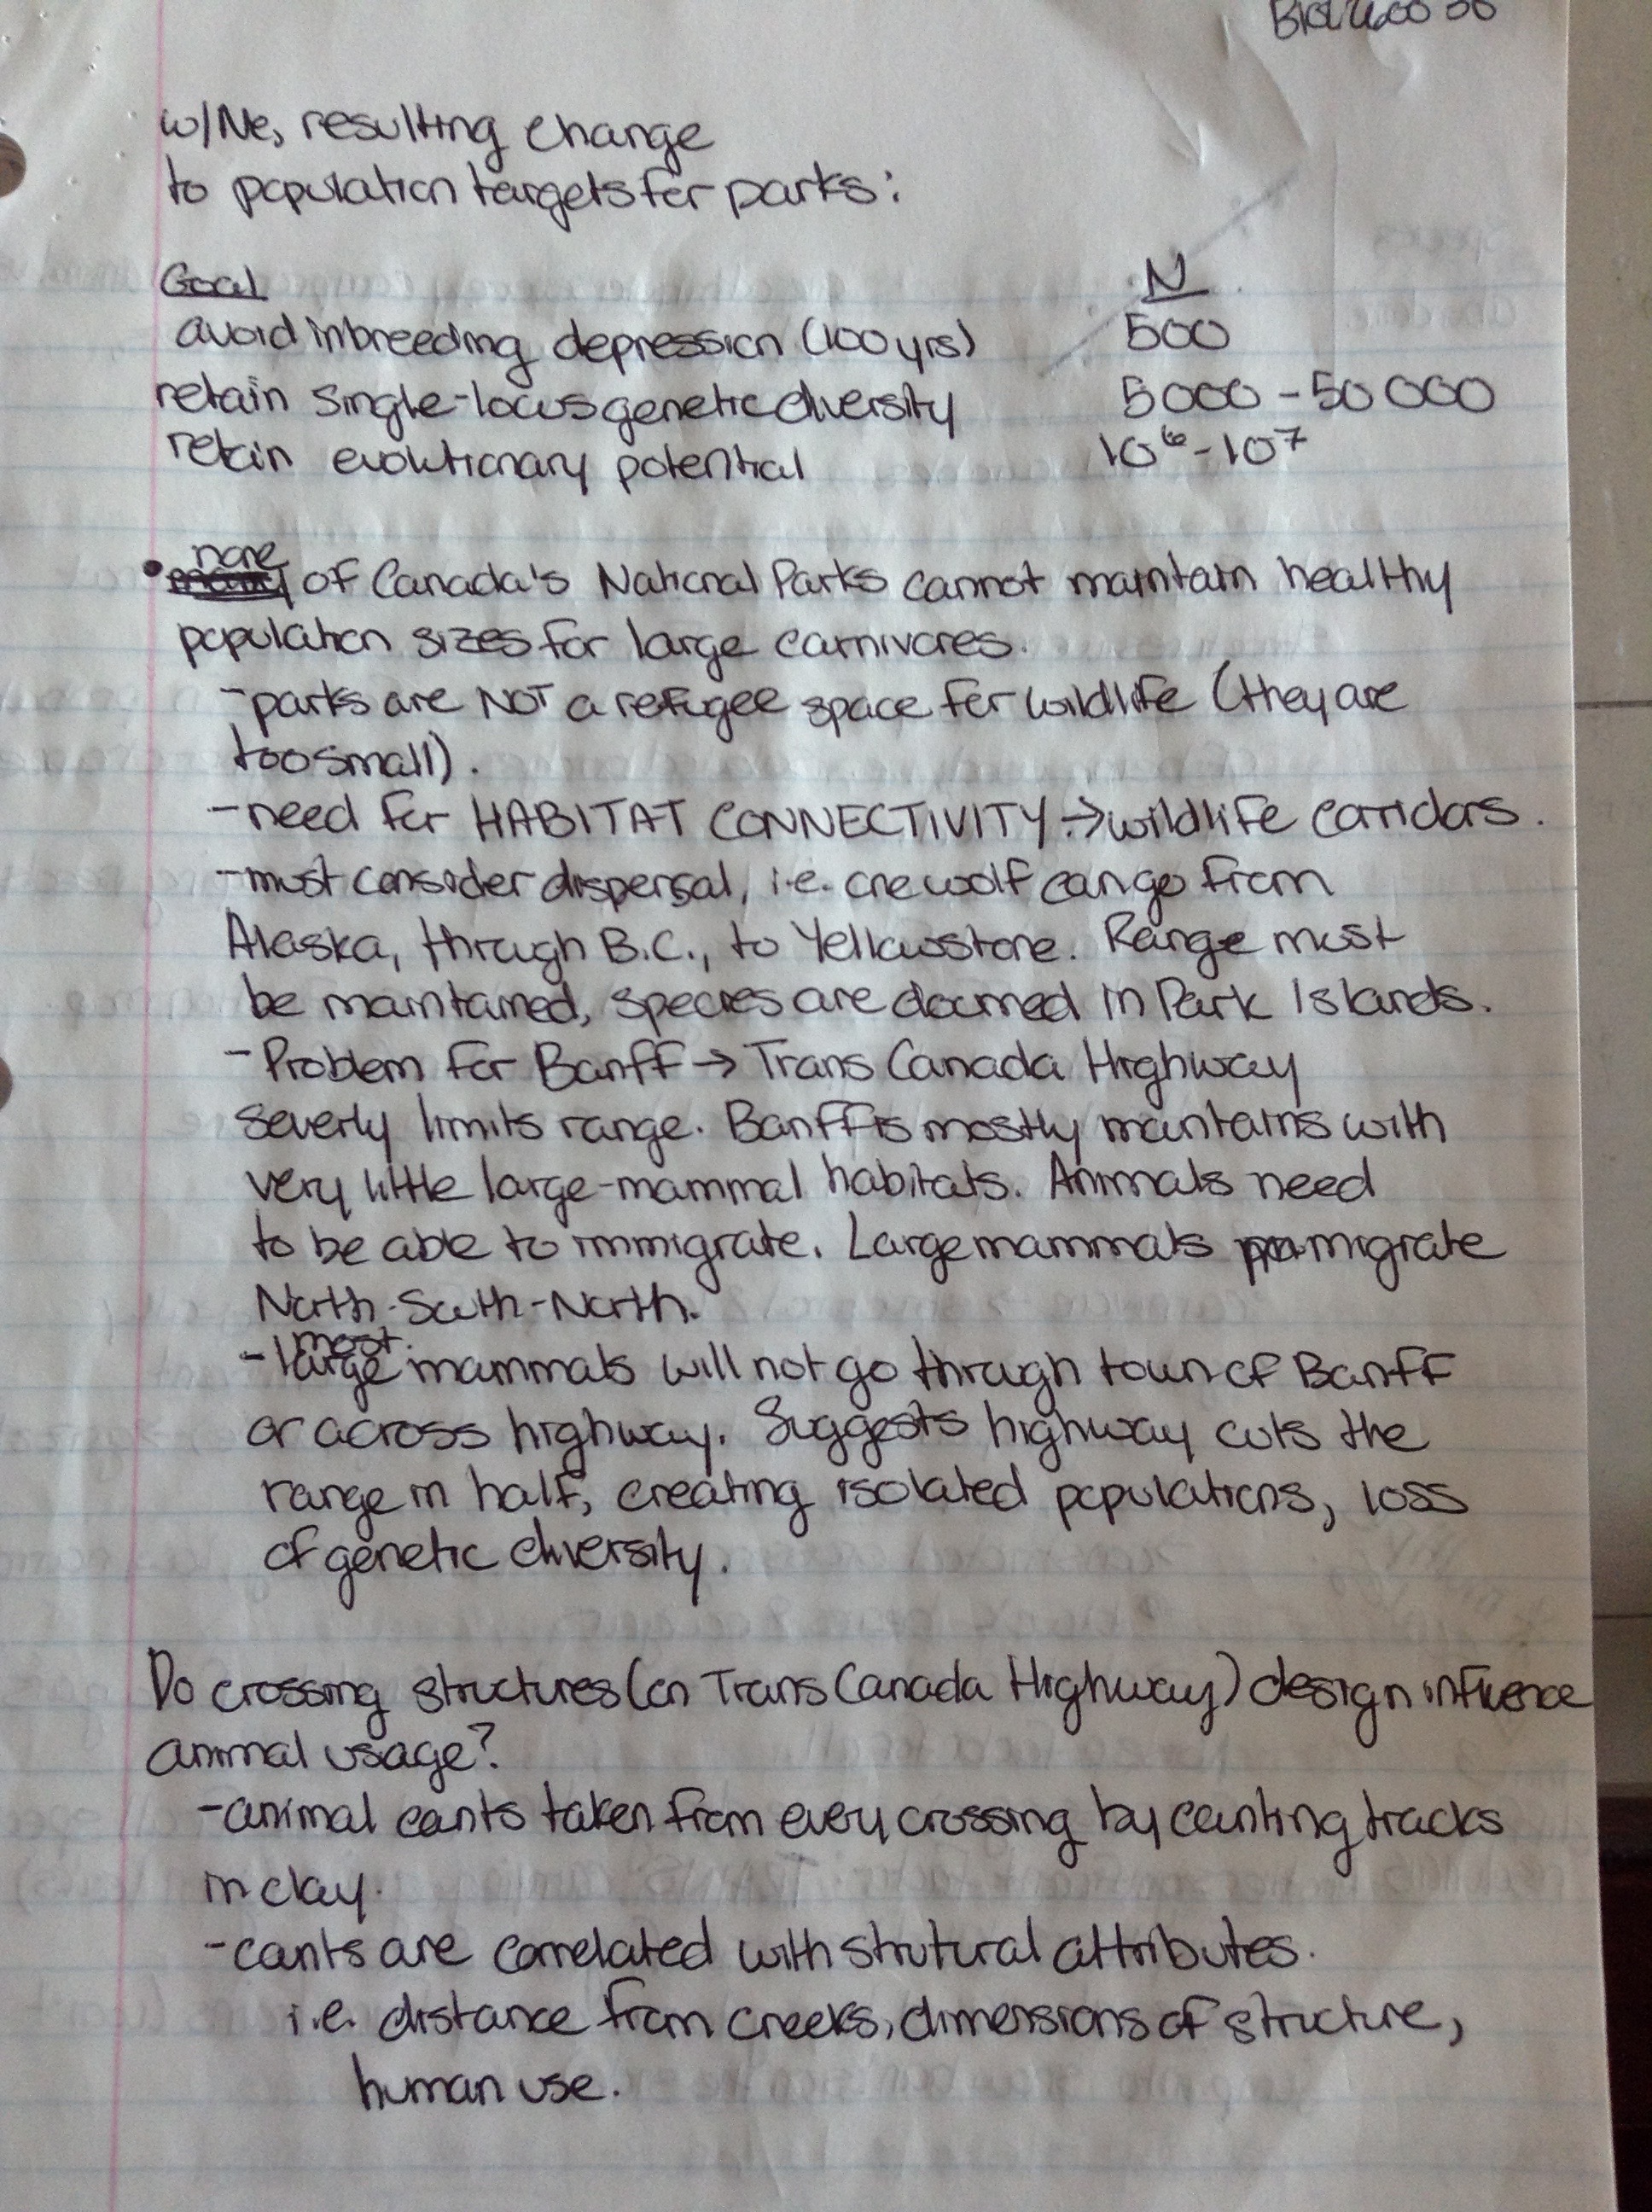 w/Ne, resulting change
to population targets for parks:
Goal N
avoid inbreeding depression (100 yrs) 500
retain single-locus genetic diversity 5000 - 50 000
retain evolutionary potential 10⁶ - 10⁷
• none of Canada's National Parks cannot maintain healthy
population sizes for large carnivores.
- parks are NOT a refugee space for wildlife (they are
too small).
- need for HABITAT CONNECTIVITY → wildlife corridors.
- must consider dispersal, i.e. one wolf can go from
Alaska, through B.C., to Yellowstone. Range must
be maintained, species are doomed in Park Islands.
- Problem for Banff → Trans Canada Highway
severly limits range. Banff is mostly mountains with
very little large-mammal habitats. Animals need
to be able to immigrate. Large mammals migrate
North-South-North.
most
- large mammals will not go through town of Banff
or across highway. Suggests highway cuts the
range in half, creating isolated populations, loss
of genetic diversity.
Do crossing structures (on Trans Canada Highway) design influence
animal usage?
- animal counts taken from every crossing by counting tracks
in clay.
- counts are correlated with strutural attributes.
i.e. distance from creeks, dimensions of structure,
human use.